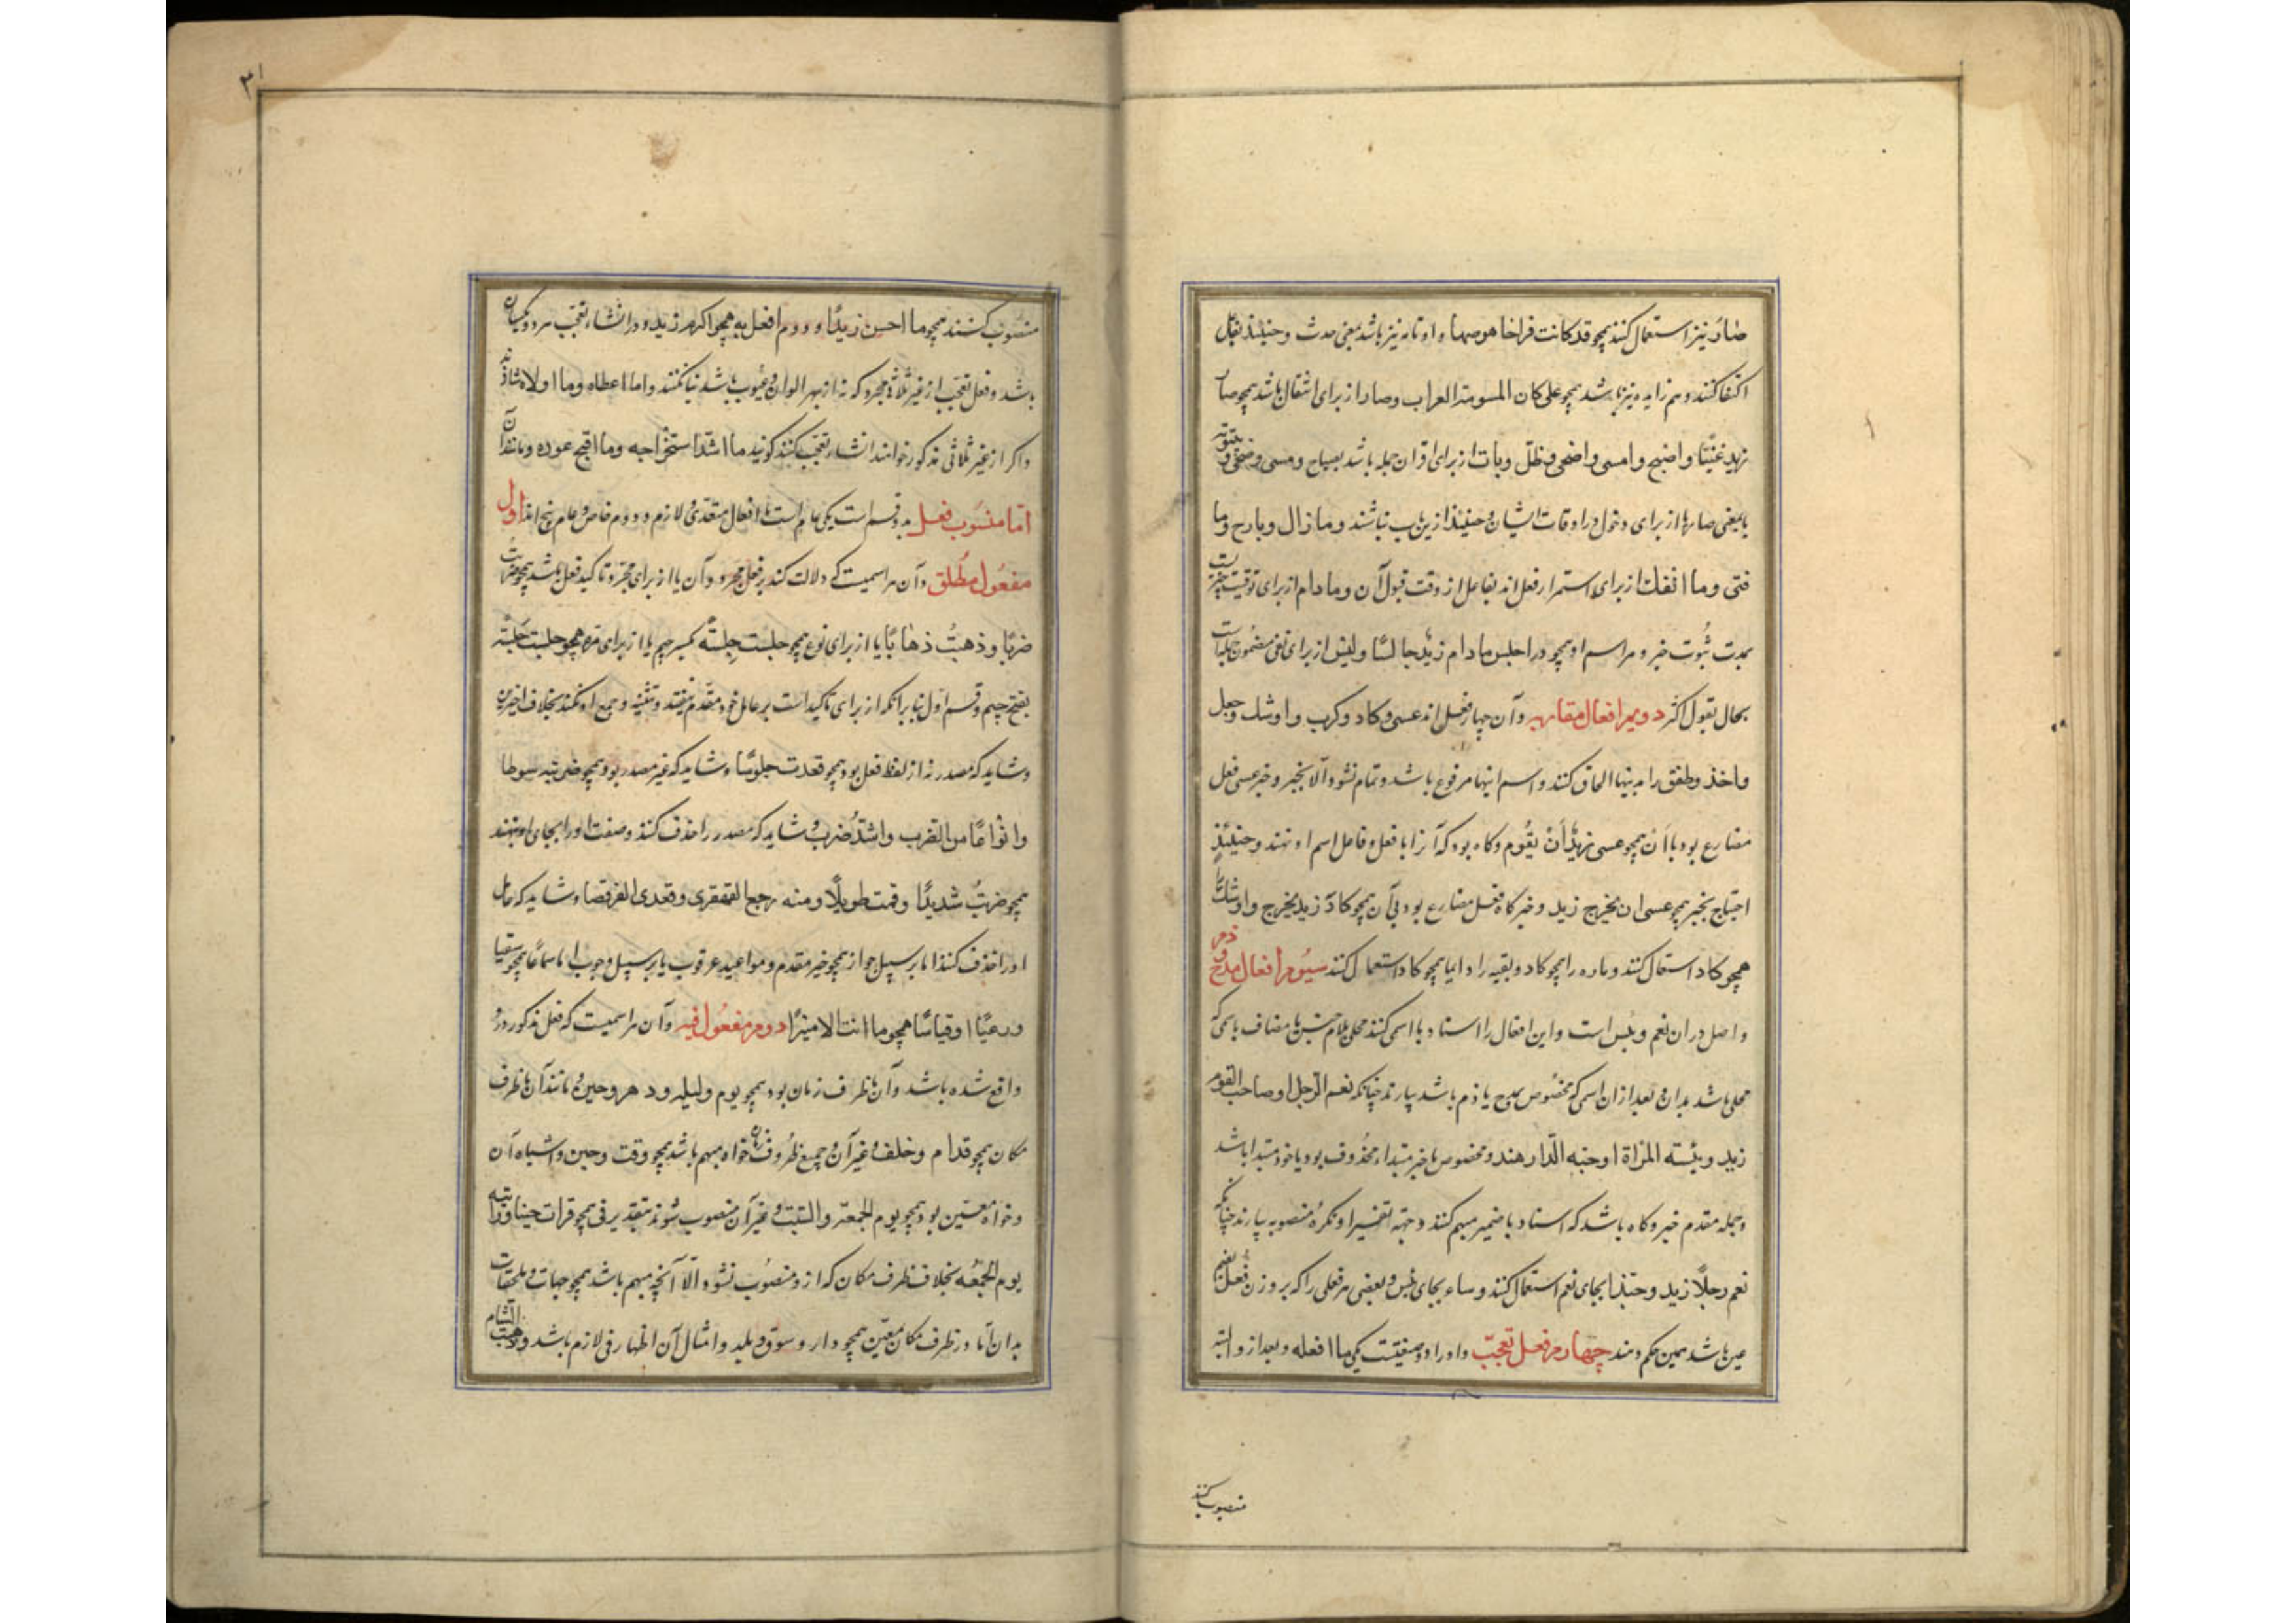 صار نیز استعمال کنند همچو قد کانت فراخا و تامه نیز باشد بمعنی حدث و حینئذ بفاعل
اکتفا کنند و هم زایده نیز باشد همچو علی کان المسومة العراب و صار از برای انتقال باشد همچو صار
زید غنیّا و اصبح و امسی و اضحی و ظل و بات از برای اقران جمله باشد بصباح و مسی و ضحی و
یا بمعنی صار یا از برای دخول در اوقات ایشان و حینئذ ازین باب نباشند و ما زال و ما برح و ما
فتی و ما انفک از برای استمرار فعل اند بفاعل از وقت قبول آن و ما دام از برای توقیت چیزیست
بمدت ثبوت خبر و مر اسم او همچو در اجلس ما دام زید جالسًا و لیس از برای نفی مضمون جمله است
بحال بقول اکثر دویم افعال مقاربه و آن چهار فعل اند عسی و کاد و کرب و اوشک و جعل
و اخذ و طفق را بدینها الحاق کنند و اسم اینها مرفوع باشد و تمام نشود الا بخبر و خبر عسی فعل
مضارع بود با أن همچو عسی زیدٌ أن یقوم و کاه بود که آنرا با فعل و فاعل اسم او نهند و حینئذٍ
احتیاج بخبر همچو عسی ان یخرج زید و خبر کاد فعل مضارع بود بی آن همچو کاد زید یخرج و اوشک را
همچو کاد استعمال کنند و بقیه را دایما همچو کاد استعمال کنند سیوم افعال مدح و ذم
و اصل در ان نعم و بئس است و این افعال را اسناد با اسمی کنند محلی بلام جنس یا مضاف باسمی که
محلی باشد بدان و بعد از ان اسمی که مخصوص بمدح یا ذم باشد بیارند چنانکه نعم الرجل او صاحب القوم
زید و بئسة المرأة او حبه الدار هند و مخصوص یا خبر مبتداء محذوف بود یا خود مبتدا باشد
و جمله مقدم خبر و کاه باشد که اسناد با ضمیر مبهم کنند و جهة تفسیر او نکرهٔ منصوبه بیارند چنانکه
نعم رجلًا زید و حبذا بجای نعم استعمال کنند و ساء بجای بئس و بعضی هر فعلی را که بر وزن فعل بضم
عین باشد همین حکم دهند چهارم فعل تعجب و او را دو صیغتست یکی ما افعله و بعد از و البته
منصوب کنند
۳
منصوب کنند همچو ما احسن زیدًا و دوم افعل به همچو اکرم زید و در انشاء تعجب هر دو یکسان
باشد و فعل تعجب از غیر ثلاثی مجرد که نه از بهر الوان و عیوب باشد بنا نکنند و اما اعطاه و ما اولاه شاذند
و اکر از غیر ثلاثی مذکور خواهند انشاء تعجب کنند کویند ما اشد استخراجه و ما اقبح عوره و مانند آن
اما منصوب فعل بدو قسم است یکی عام است با افعال متعدی و لازم و دوم خاص و عام پنج اند اول
مفعول مطلق و آن هر اسمیست که دلالت کند بر فعل مجرد و آن یا از برای مجرد تاکید فعل باشد همچو ضربت
ضربًا و ذهبتُ ذهابًا یا از برای نوع همچو جلست جِلسةً بکسر جیم یا از برای مره همچو جلست جَلسة
بفتح جیم و قسم اول بنا برانکه از برای تاکید است بر عامل خود مقدم نیفتد و تثنیه و جمع او نکنند بخلاف اخیرین
و شاید که مصدر نه از لفظ فعل بود همچو قعدت جلوسًا و شاید که غیر مصدر بود همچو ضربته سوطا
و انواعًا من الضرب و اشد ضرب و شاید که مصدر را حذف کنند و صفت او را بجای او نهند
همچو ضربتُ شدیدًا و قمت طویلًا و منه رجع القهقری و قعدی القرفصا و شاید که عامل
او را حذف کنند اما بر سبیل جواز همچو خیر مقدم و مواعید عرقوب یا بر سبیل وجوب اما سماعًا همچو سقیا
و رعیًا او قیاسًا همچو ما انت الا سیرًا دوم مفعول فیه و آن هر اسمیست که فعل مذکور در و
واقع شده باشد و آن یا ظرف زمان بود همچو یوم و لیله و دهر و حین و مانند آن یا ظرف
مکان همچو قدام و خلف و غیر آن و جمیع ظروف زمان خواه مبهم باشد همچو وقت و حین و اشباه آن
و خواه معین بود همچو یوم الجمعة و السبت و غیر آن منصوب شوند بتقدیر فی همچو قرات حینا و راتبه
یوم الجمعه بخلاف ظرف مکان که ازو منصوب نشود الّا آنچه مبهم باشد همچو جهات و ملحقات
بدان اما در ظرف مکان معین همچو دار و سوق و بلد و امثال آن اظهار فی لازم باشد و ذهبت الشام